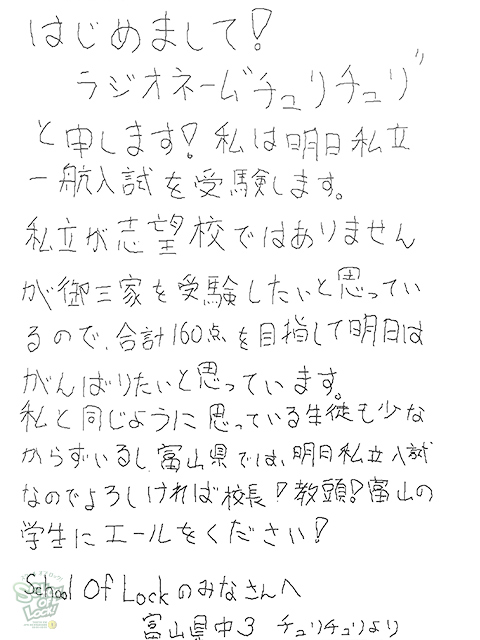 はじめまして!
ラジオネーム"チュリチュリ"
と申します!私は明日私立
一航入試を受験します。
私立が志望校ではありません
が御三家を受験したいと思ってい
るので、合計160点を目指して明日は
がんばりたいと思っています。
私と同じように思っている生徒も少な
からずいるし、富山県では、明日私立入試
なのでよろしければ校長!教頭!富山の
学生にエールをください!
School Of Lockのみなさんへ
富山県中3 チュリチュリより
School Of Lock!